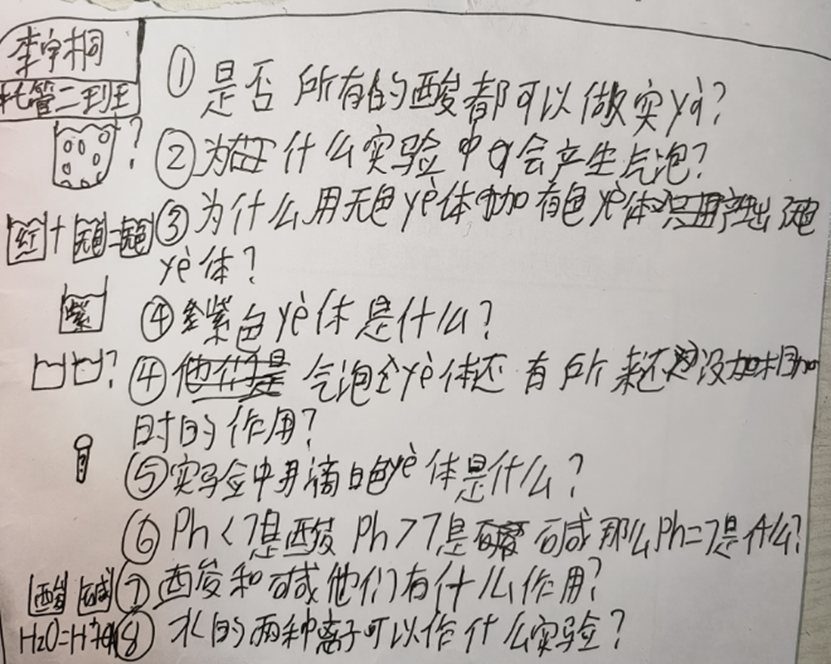 李宇桐
托管二到班
①是否所有的酸都可以做实yà?
?
②为什么实验中会产生气泡?
③为什么用无色yè体加有色yè体产出
红+无色=无色
yè体?
紫
④紫色yè体是什么?
?
④气泡yè体还有所来还没加
时的作用?
⑤实验中用滴白色yè体是什么?
⑥Ph<7是酸 Ph>7是碱那么Ph=7是什么?
酸 碱
⑦酸和碱他们有什么作用?
H2O=H+
⑧水的两种离子可以作什么实验?